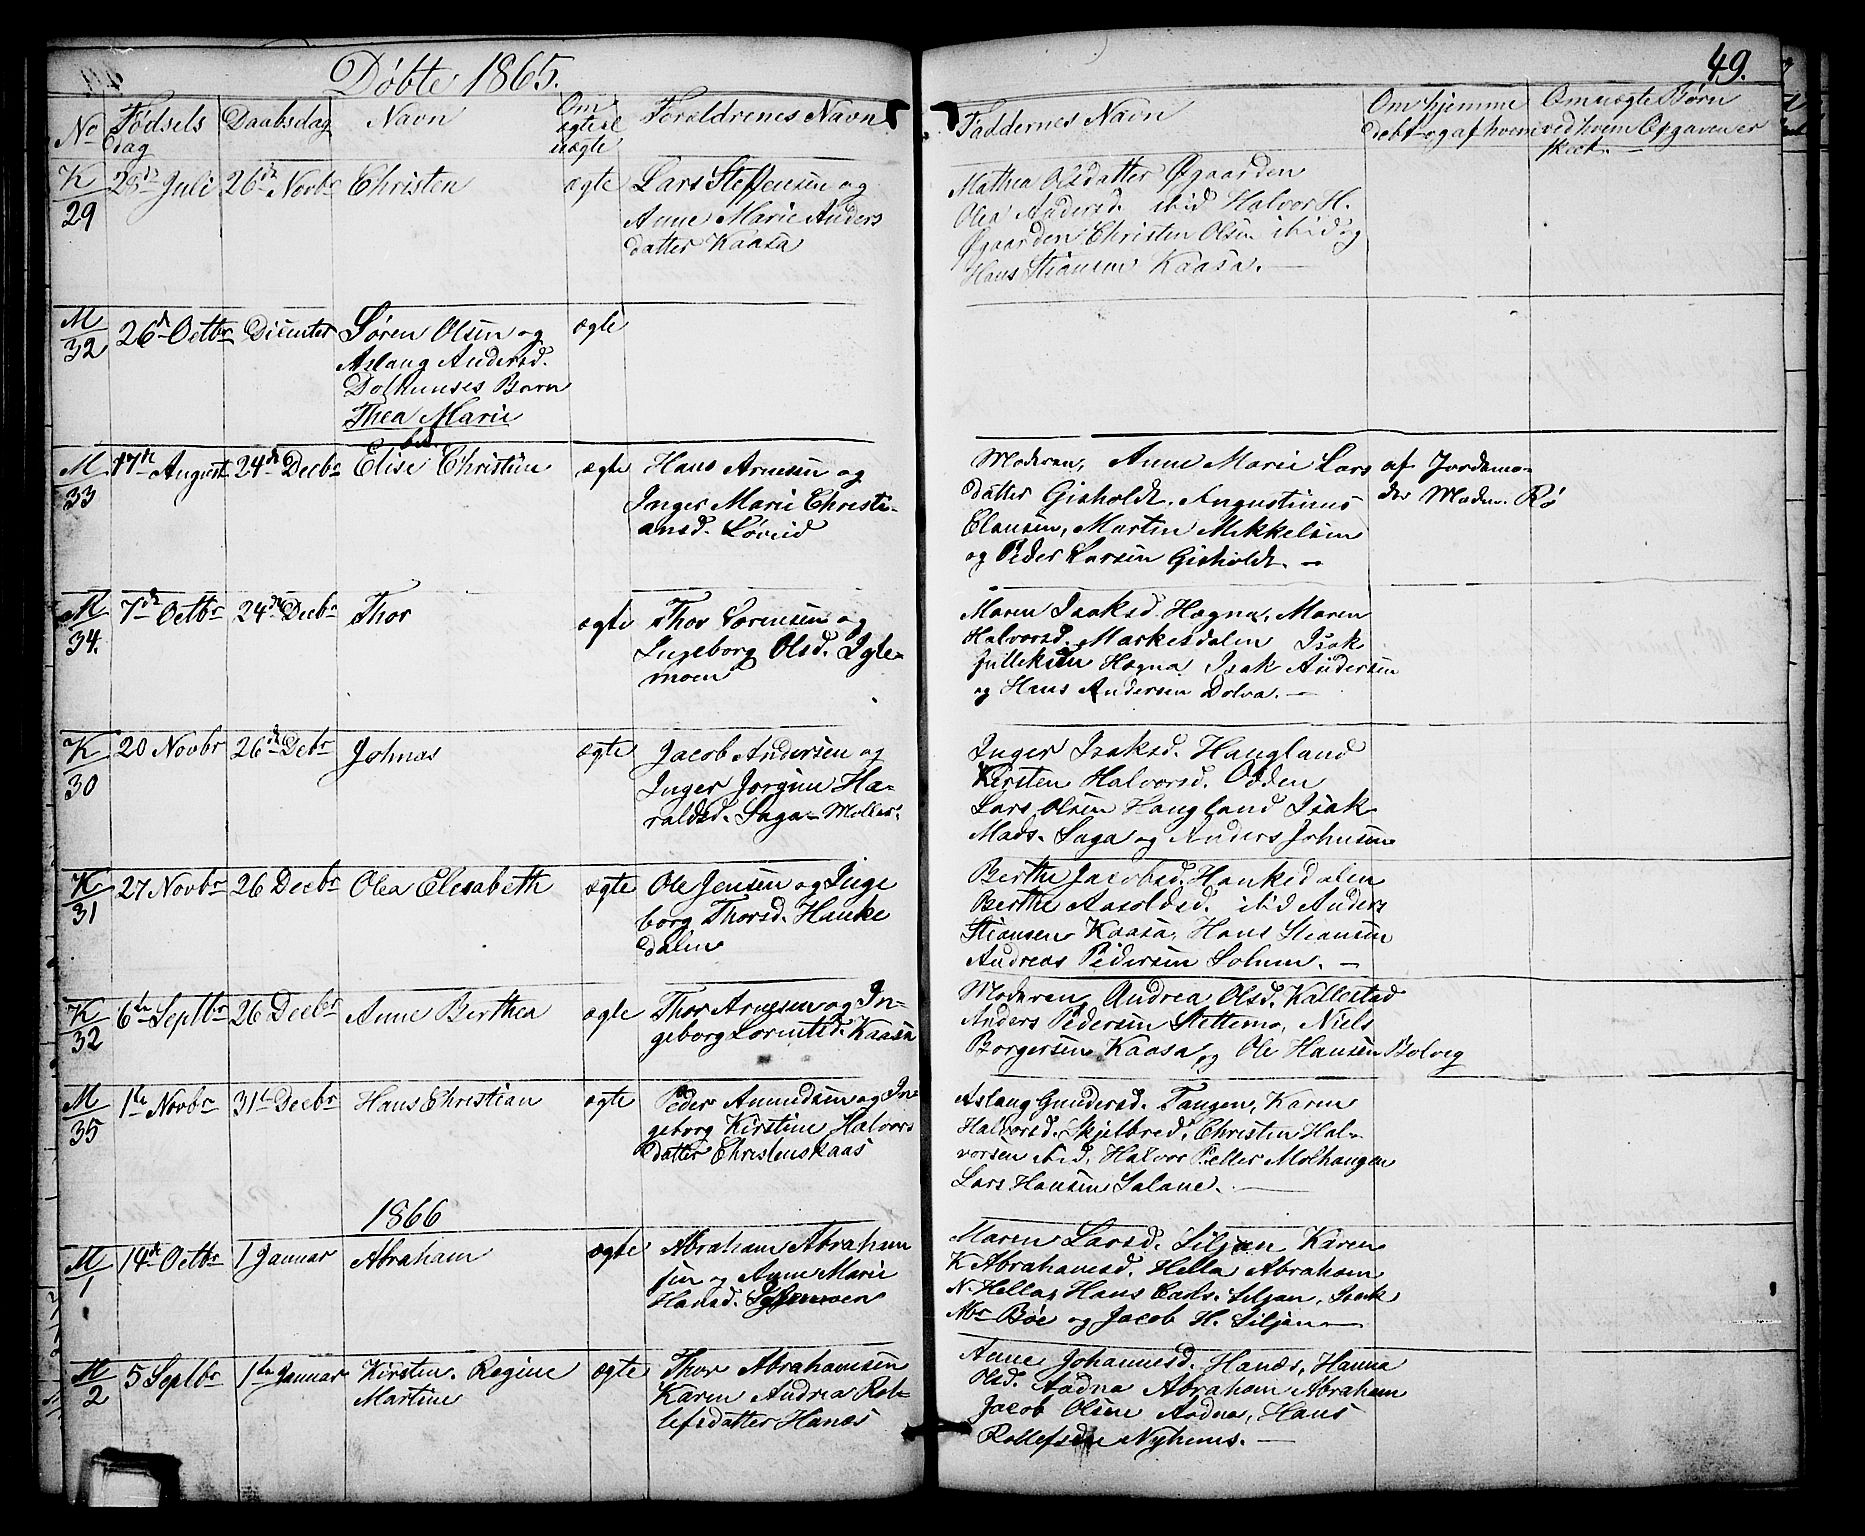 Døbte 1865.
49.
No Fødsels dag Daabsdag Navn Om ægte el uægte Foreldrenes Navn Faddernes Navn Om hjemme døbt og af hvem Om uægte Børn ved hvem Opgaven er skeet.
K 29 26de Novbr Christen ægte Lars Steffensen og
Anne Marie Anders
datter Kaasa
Mathea Olsdatter Øgaarden
Olea Andersd. ibid Halvor H.
Øgaarden Christen Olsen ibid og
Hans Stiansen Kaasa. —
M 32 26de Octbr Søren Olsen og ægte
Aslaug Andersd.
Barn
Thea Marie
M 33 17de August 24de Decbr Elise Christine ægte Hans Arnesen og
Inger Marie Christi-
ansd. Løveid
Moderen, Anne Marie Lars
datter Gisholdt, Augustinus
Clausen, Martin Mikkelsen
og Peder Larsen Gisholdt. —
af Jordemo-
der Madm. Rø
M 34. 7de Octbr 24de Decbr Thor ægte Thor Sørensen og
Ingeborg Olsd. Igle-
moen
Maren Isaksd. Høgna, Maren
Halvorsd. Markesdalen Isak
Gulleksen Høgna Isak Andersen
og Hans Andersen Dolva. —
K 30 20 Novbr 26de Debr Johnas ægte Jacob Andersen og
Inger Jorgine Ha-
raldsd. Saga-Moller.
Inger Isaksd. Haugland
Kirsten Halvorsd. Odden
Lars Olsen Haugland Isak
Mads. Saga og Anders Johnsen
K 31 27 Novbr 26 Decbr Olea Elesabeth ægte Ole Jensen og Inge
borg Thorsd. Hauke
dalen
Berthe Jacobsd. Haukedalen
Berthe Aasoldsd. ibid Anders
Stiansen Kaasa, Hans Stiansen
Andreas Pedersen Solum. —
K 32 6te Septbr 26 Decbr Anne Berthea ægte Thor Arnesen og In-
geborg Lorentsd. Kaasa
Moderen Andrea Olsd. Kallestad
Anders Pedersen Slettemo, Niels
Borgersen Kaasa og Ole Hansen Bolvig
M 35 1te Novbr 31te Decbr Hans Christian ægte Peder Amundsen og In
geborg Kirstine Halvors
datter Christenskaas
Aslaug Gundersd. Tangen, Karen
Halvorsd. Skjelbred, Christen Hal-
vorsen ibid, Halvor Petter Molhaugen
Lars Hansen Salane. —
1866
M 1 14de Octbr 1 Januar Abraham ægte Abraham Abraham
sen og Anne Marie
Hansd.
Maren Larsd. Siljan Karen
K Abrahamsd. Hella Abraham
N. Hella, Hans Carls. Siljan, Isack
Nbr Bøe og Jacob H. Siljan —
M 2 5 Septbr 1te Januar Kirsten Regine ægte Thor Abrahamsen
Martine Karen Andrea Rol-
lefsdatter Hanæs
Anne Johannesd. Hanæs, Hanna
Olsd. Aadna Abraham Abraham
Jacob Olsen Aadna, Hans
Rollefsen Nyhuus. —